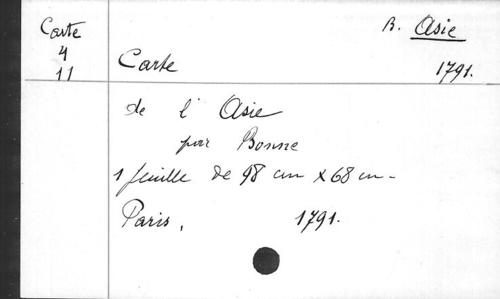 Carte
4
11
R. Asie
Carte 1791.
de l' Asie
par Bonne
1 feuille de 98 cm x 68 cm -
Paris, 1791.